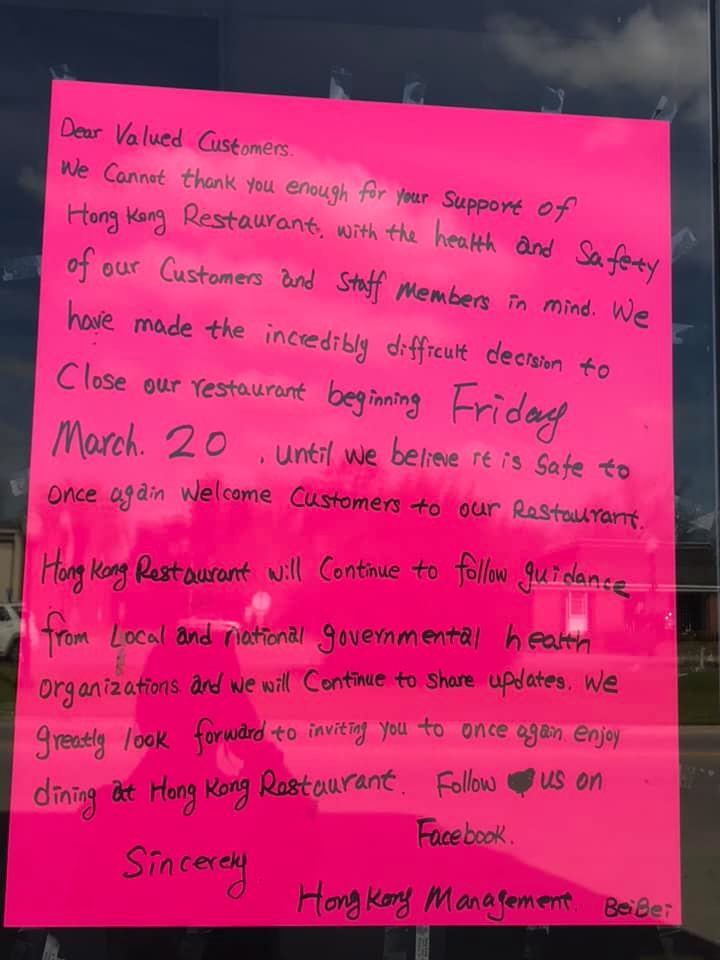 Dear Valued Customers.
We Cannot thank you enough for your Support of
Hong Kong Restaurant. with the health and Safety
of our Customers and Staff Members in mind. We
have made the incredibly difficult decision to
Close our restaurant beginning Friday
March. 20 , until we believe it is Safe to
once again Welcome Customers to our Restaurant.
Hong Kong Restaurant will Continue to follow guidance
from Local and national governmental health
organizations and we will Continue to share updates. We
greatly look forward to inviting you to once again enjoy
dining at Hong Kong Restaurant. Follow us on
Facebook.
Sincerely
Hong Kong Management. BeiBei